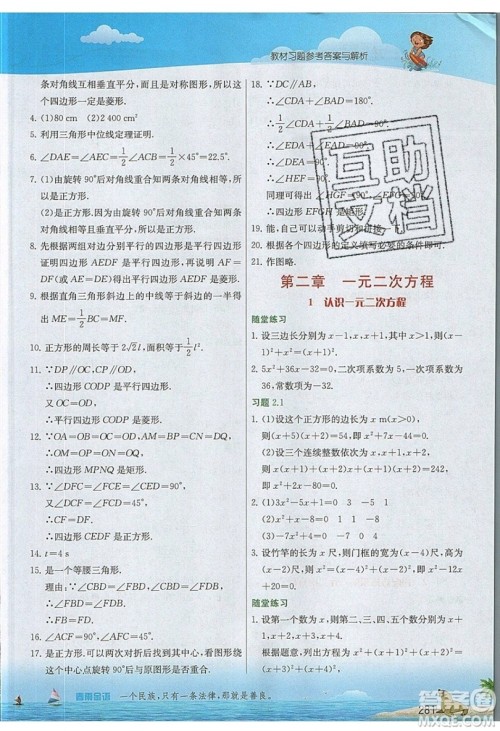 教材习题参考答案与解析
条对角线互相垂直平分,所以这
个四边形一定是菱形.
4. (1)80 cm (2)2 400 cm²
5. 利用三角形中位线定理证明.
6. ∠DAE=∠AEC=1/4∠BAE=1/2×45°=22.5°.
7. (1)由旋转90°后对角线重合知两条
对角线互相垂直平分且相等,所以
是正方形.
(2)是正方形.因为由旋转90°后对
角线重合知两条对角线互相垂直平
分且相等,所以是正方形.
8. 先根据两组对边分别平行的四边形
是平行四边形证明四边形
证明四边形 AEDF 是菱形.
9. 根据直角三角形斜边中线等于斜边的一半得
出 ME=1/2BC=MF.
10. 正方形的周长等于2√2l,面积等于1/2l².
11. ∵DP∥OC,CP∥OD,
∴四边形 CODP 是平行四边形.
又OC=OD,
∴平行四边形 CODP 是菱形.
12. ∵OA=OB=OD=OC,
∴OM=OP=OQ=ON.
∴四边形 MPNQ 是矩形.
13. ∵∠CED=∠CFD=∠ECF=90°,
∴四边形 CEDF 是矩形.
又∠DCF=∠CDF=45°,
∴CF=DF.
∴四边形 CEDF 是正方形.
14. t=4 s
15. 是一个等腰三角形.
∵∠CBD=∠FBD,∠CBD=∠FDB,
∴∠FBD=∠FDB.
∴FB=FD.
16. ∠AFC=90°+22.5°=112.5°.
17. 是正方形.可以两次对折后找到其中心,看图形
围绕这个中心点旋转90°后图形是否重合.
∵DC∥AB,
∴∠DAB+∠ADC=180°.
∴∠HDE=90°,
同理可得出
∴四边形 EFGH 是矩形.
19. 能,剪切可以
20. 根据各图形的定义填写必要的条件即可.
21. 作图略.
第二章 一元二次方程
1 认识一元二次方程
随堂练习
1. 设三边长分别为x,x+1,x+2,则
(x+1)²+x²=(x+2)².
2. 5x²+36x-32=0,二次项系数为5,一次项系数为
36,常数项为-32.
习题 2.1
1. (1)设这个正方形的边长为x m(x>0),
则(x+5)(x+2)=54,即x²+7x-44=0.
(2)设三个连续整数依次为x,x+1,x+2,则
x(x+1)+x(x+2)+(x+1)(x+2)=242,
即x²+2x-80=0.
2. (1)3x²-5x+1=0 3 -5 1
(2)x²+x-8=0 1 1 -8
(3)-7x²+4=0 -7 0 4
3. 设竹竿的长为x尺,则门框的宽为(x-4)尺,高为
(x-2)尺.根据题意,得(x-4)²+(x-2)²=x².
即x²-12x+20=0.
随堂练习
1. 设第一个数为x,则第二、三、四、五个数分别为x+
1,x+2,x+3,x+4.
根据题意,一元二次方程为
x²+(x+1)²+(x+2)²=(x+3)²+(x+4)².
一个民族,只有一条法律,那就是善良。
互助
文档